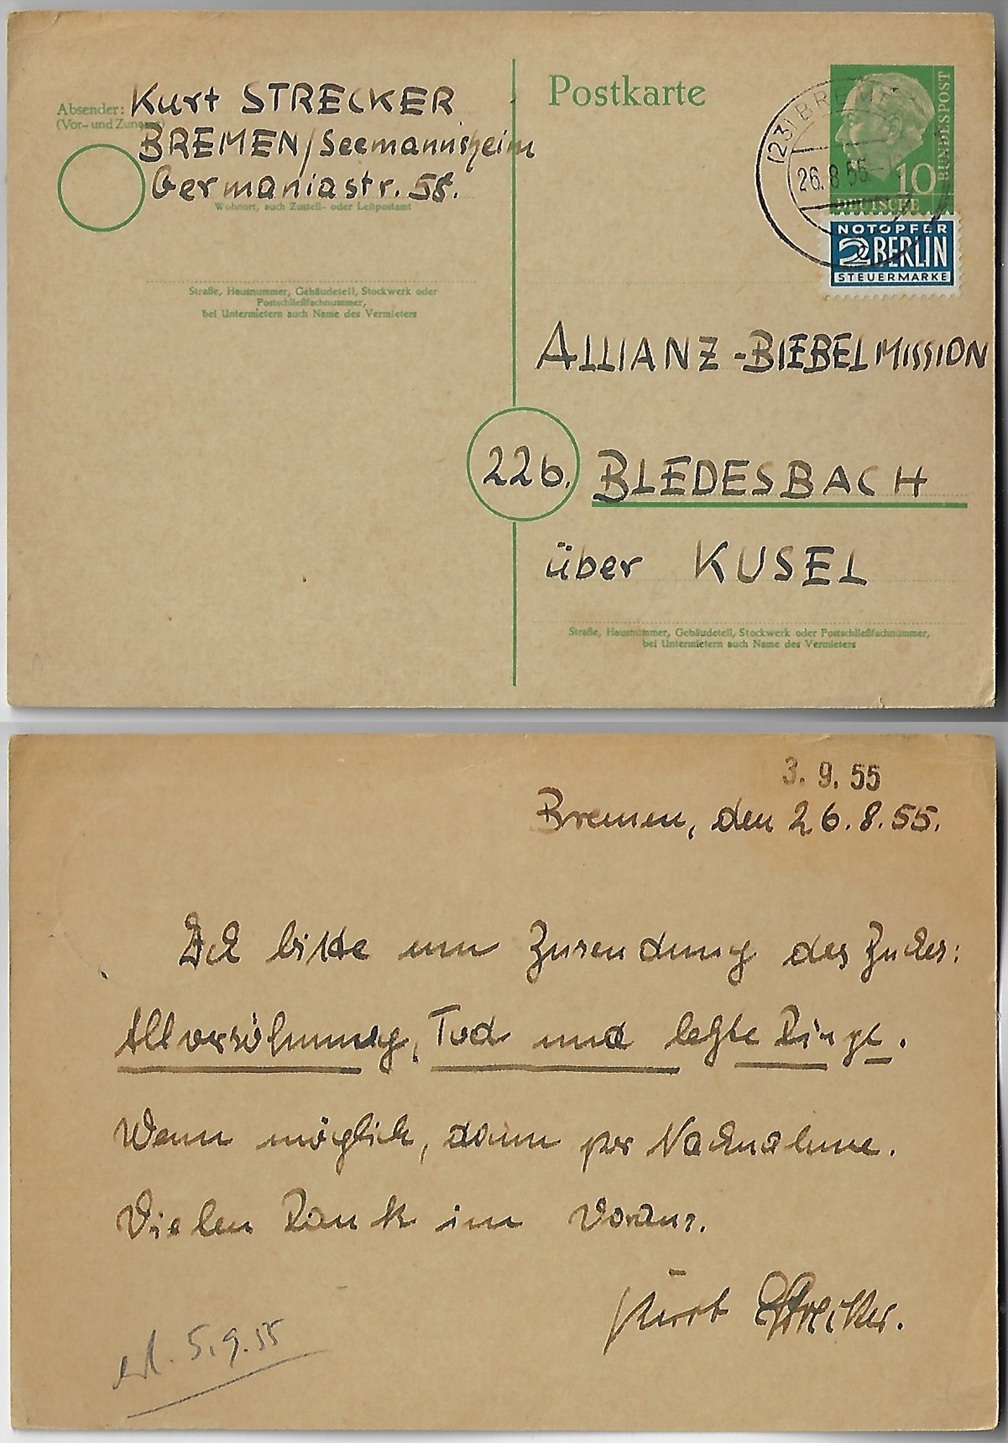 Absender: Kurt STRECKER
(Vor- und Zuname)
BREMEN/Seemannsheim
Germaniastr. 58.
Wohnort, auch Zustell- oder Leitpostamt
Straße, Hausnummer, Gebäudeteil, Stockwerk oder
Postschließfachnummer,
bei Untermietern auch Name des Vermieters
Postkarte
(23) BREMEN
26.8.55
10
DEUTSCHE
BUNDESPOST
NOTOPFER
2 BERLIN
STEUERMARKE
ALLIANZ-BIEBELMISSION
22b. BLEDESBACH
über KUSEL
Straße, Hausnummer, Gebäudeteil, Stockwerk oder Postschließfachnummer,
bei Untermietern auch Name des Vermieters
3. 9. 55
Bremen, den 26.8.55.
Ich bitte um Zusendung des Buches:
Allversöhnung, Tod und letzte Dinge.
Wenn möglich, dann per Nachnahme.
Vielen Dank im Voraus.
Kurt Strecker.
erl. 5.9.55